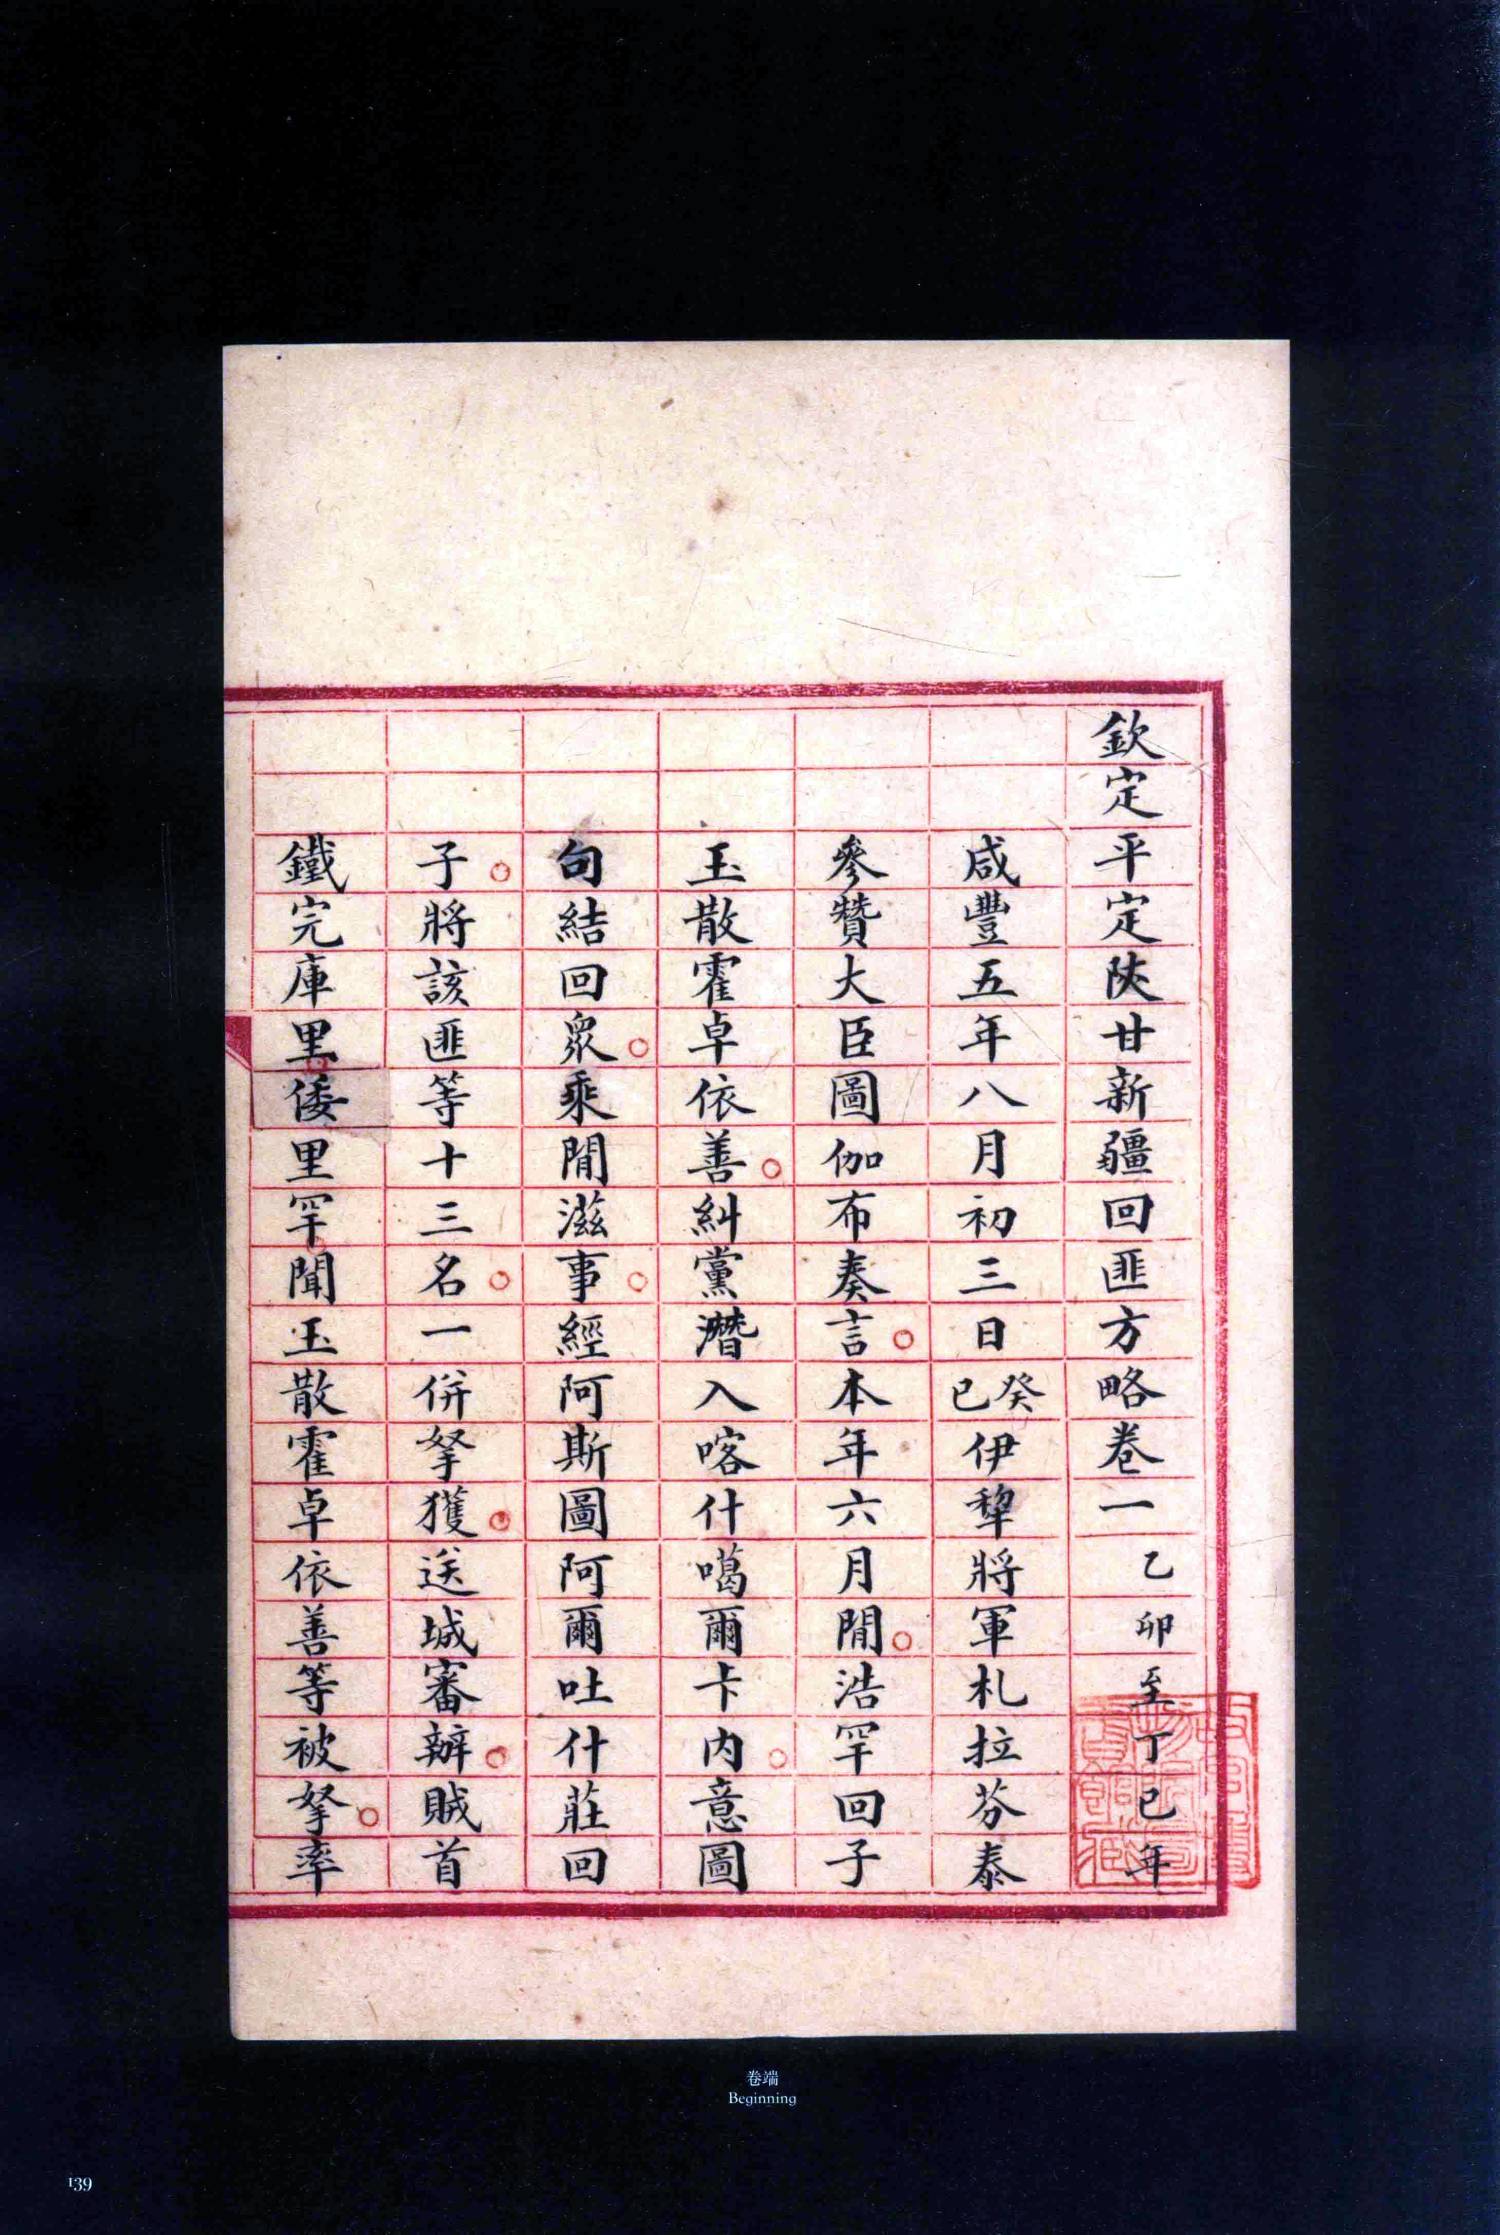 欽定平定陝甘新疆回匪方略卷一 乙卯至丁巳年
咸豐五年八月初三日癸巳伊犂將軍札拉芬泰
參贊大臣圖伽布奏言本年六月閒浩罕回子
玉散霍卓依善糾黨潛入喀什噶爾卡內意圖
句結回眾乘閒滋事經阿斯圖阿爾吐什莊回
子將該匪等十三名一併拏獲送城審辦賊首
鐵完庫里倭里罕聞玉散霍卓依善等被拏率
卷端
Beginning
139